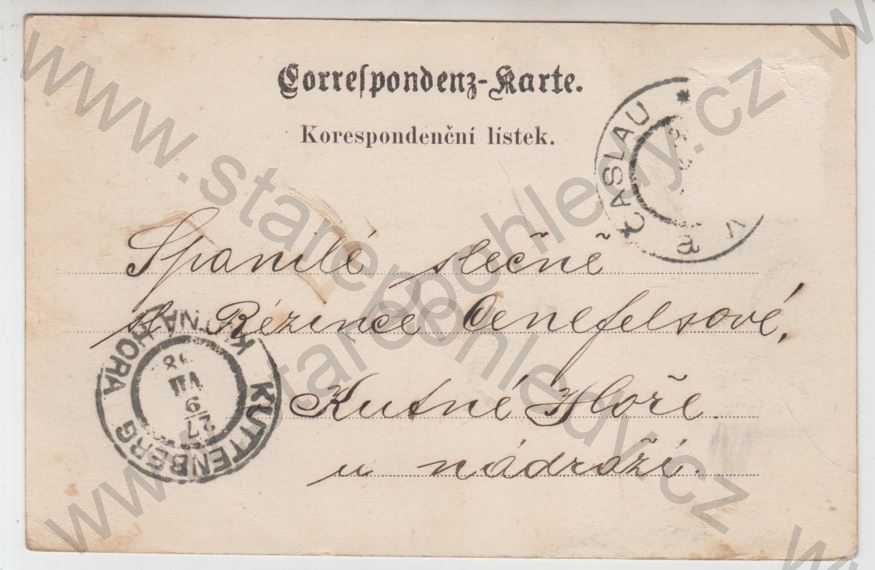 Correspondenz-Karte.
Korespondenční lístek.
ČASLAU
a
Spanilé slečně
sl. Rézince Oenefelsové,
Kutné Hoře.
u nádraží.
KUTTENBERG
KUTNÁ HORA
27
9
VII
98
www.starepohledy.cz
www.starepohledy.cz